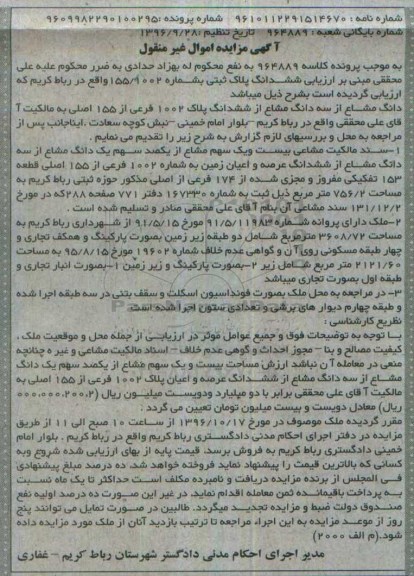 شماره نامه : ۹۶۱۰۱۱۲۲۹۱۵۱۴۶۷۰ شماره پرونده :۹۶۰۹۹۸۲۲۹۰۱۰۰۲۹۵
شماره بایگانی شعبه : ۹۶۴۸۸۹ تاریخ تنظیم :۱۳۹۶/۹/۲۸
آگهی مزایده اموال غیر منقول
به موجب پرونده کلاسه ۹۶۴۸۸۹ به نفع محکوم له بهزاد حدادی به ضرر محکوم علیه علی
محققی مبنی بر ارزیابی ششدانگ پلاک ثبتی بشماره ۱۵۵/۱۰۰۲واقع در رباط کریم که
ارزیابی گردیده است بشرح ذیل میباشد
دانگ مشاع از سه دانگ مشاع از ششدانگ پلاک ۱۰۰۲ فرعی از ۱۵۵ اصلی به مالکیت آ
قای علی محققی واقع در رباط کریم –بلوار امام خمینی –نبش کوچه سعادت ،اینجانب پس از
مراجعه به محل و بررسیهای لازم گزارش به شرح زیر را تقدیم می نمایم .
۱–سند مالکیت مشاعی بیست ویک سهم مشاع از یکصد سهم یک دانگ مشاع از سه
دانگ مشاع از ششدانگ عرصه و اعیان زمین به شماره ۱۰۰۲ فرعی از ۱۵۵ اصلی قطعه
۱۵۳ تفکیکی مفروز و مجزی شده از ۱۷۴ فرعی از اصلی مذکور حوزه ثبتی رباط کریم به
مساحت ۷۵۶/۲ متر مربع ذیل ثبت به شماره ۱۶۷۳۳۰ دفتر ۷۷۱ صفحه ۲۸۸که در مورخ
۱۳۱/۱۲/۲ سند مشاعی آن بنام آ قای علی محققی صادر و تسلیم شده است .
۲–ملک دارای پروانه شماره ۹۱/۵/۱۱۹۸۳ مورخ ۹۱/۵/۱۵ از شهرداری رباط کریم به
مساحت ۳۶۰۸/۷۲ مترمربع شامل دو طبقه زیر زمین بصورت پارکینگ و همکف تجاری و
چهار طبقه مسکونی روی آن و گواهی عدم خلاف شماره ۱۹۶۰۲ مورخ ۹۵/۸/۱۵ به مساحت
۲۱۲۱/۶۰ متر مربع شامل زیر ۲–بصورت پارکینگ و زیر زمین ۱–بصورت انبار تجاری و
طبقه اول بصورت تجاری میباشد
۳– در مراجعه به محل ملک بصورت فونداسیون اسکلت و سقف بتنی در سه طبقه اجرا شده
و طبقه چهارم دیوار های برشی و تعدادی ستون اجرا شده است
نظریه کارشناسی :
با توجه به توضیحات فوق و جمیع عوامل موثر در ارزیابی از جمله محل و موقعیت ملک ،
کیفیت مصالح و بنا – مجوز احداث و گوهی عدم خلاف – اسناد مالکیت مشاعی و غیره چنانچه
منعی در معامله آن نباشد ارزش مساحت بیست و یک سهم مشاع از یکصد سهم یک دانگ
مشاع از سه دانگ مشاع از ششدانگ عرصه و اعیان پلاک ۱۰۰۲ فرعی از ۱۵۵ اصلی به
مالکیت آ قای علی محققی برابر با دو میلیارد ودویست میلیون ریال (۲،۲۰۰،۰۰۰،۰۰۰
ریال) معادل دویست و بیست میلیون تومان تعیین می گردد .
مقرر گردیده ملک موصوف در مورخ ۱۳۹۶/۱۰/۱۷ از ساعت ۱۰ صبح الی ۱۱ از طریق
مزایده در دفتر اجرای احکام مدنی دادگستری رباط کریم واقع در رباط کریم . بلوار امام
خمینی دادگستری رباط کریم به فروش برسد. قیمت پایه از بهای ارزیابی شده شروع وبه
کسانی که بالاترین قیمت را پیشنهاد نماید فروخته خواهد شد. ده درصد مبلغ پیشنهادی
فی المجلس از برنده مزایده دریافت و نامبرده مکلف است حداکثر تا یک ماه نسبت
به پرداخت باقیمانده ثمن معامله اقدام نماید. در غیر این صورت ده درصد اولیه نفع
صندوق دولت ضبط و مزایده تجدید میگردد. طالبین در صورت تمایل می توانند پنج
روز از موعد مزایده به این اجراء مراجعه تا ترتیب بازدید آنان از ملک مورد مزایده داده
شود.(م الف ۲۰۰۰)
مدیر اجرای احکام مدنی دادگستر شهرستان رباط کریم – غفاری